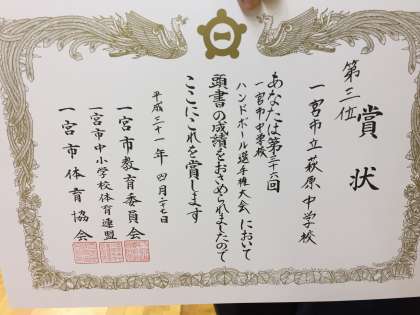 賞状
第三位
一宮市立萩原中学校
あなたは第三十六回
一宮市中学校
ハンドボール選手権大会において
頭書の成績をおさめられましたので
ここにこれを賞します
平成三十一年四月二十七日
一宮市教育委員会
一宮市中小学校体育連盟
一宮市体育協会